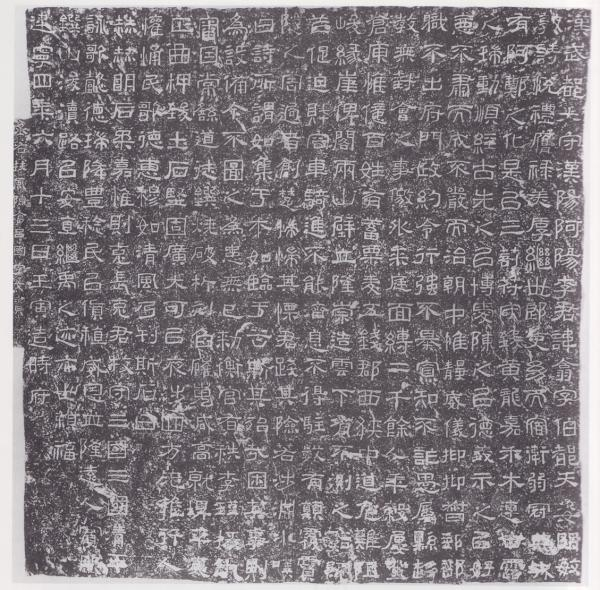 漢武都太守漢陽阿陽李君諱翕字伯都天姿明敏
敦詩悅禮膺祿美厚繼世郎吏幼而宿衛弱冠典城
有阿鄭之化是以三剖符守致黃龍嘉禾木連甘露
之瑞動順經古先之以博愛陳之以德義示之以好
惡不肅而成不嚴而治朝中惟靜威儀抑抑督郵部
職不出府門政約令行強不暴寡知不詐愚屬縣趨
教無對會之事徼外來庭面縛二千餘人年穀屢登
倉庾惟億百姓有蓄粟麥五錢郡西狹中道危難阻
峻緣崖俾閣兩山壁立隆崇造雲下有不測之谿阨
笮促迫財容車騎進不能濟息不得駐數有顛覆霣
隧之害過者創楚惴惴其慄君踐其險若涉淵冰歎
曰詩所謂如集于木如臨于谷斯其殆哉困其事則
為設備今不圖之為患無已敕衡官有秩李瑾掾仇
審因常繇道徒鐉燒破析刻臽確嵬減高就埤平夷
正曲柙致土石堅固廣大可以夜涉四方无雍行人
懽悀民歌德惠穆如清風乃刊斯石曰
赫赫明后柔嘉惟則克長克君牧守三國三國清平
詠歌懿德瑞降豐稔民以貨稙威恩並隆遠人賓服
鐉山浚瀆路以安直繼禹之迹亦世賴福
建寧四年六月十三日壬寅造時府